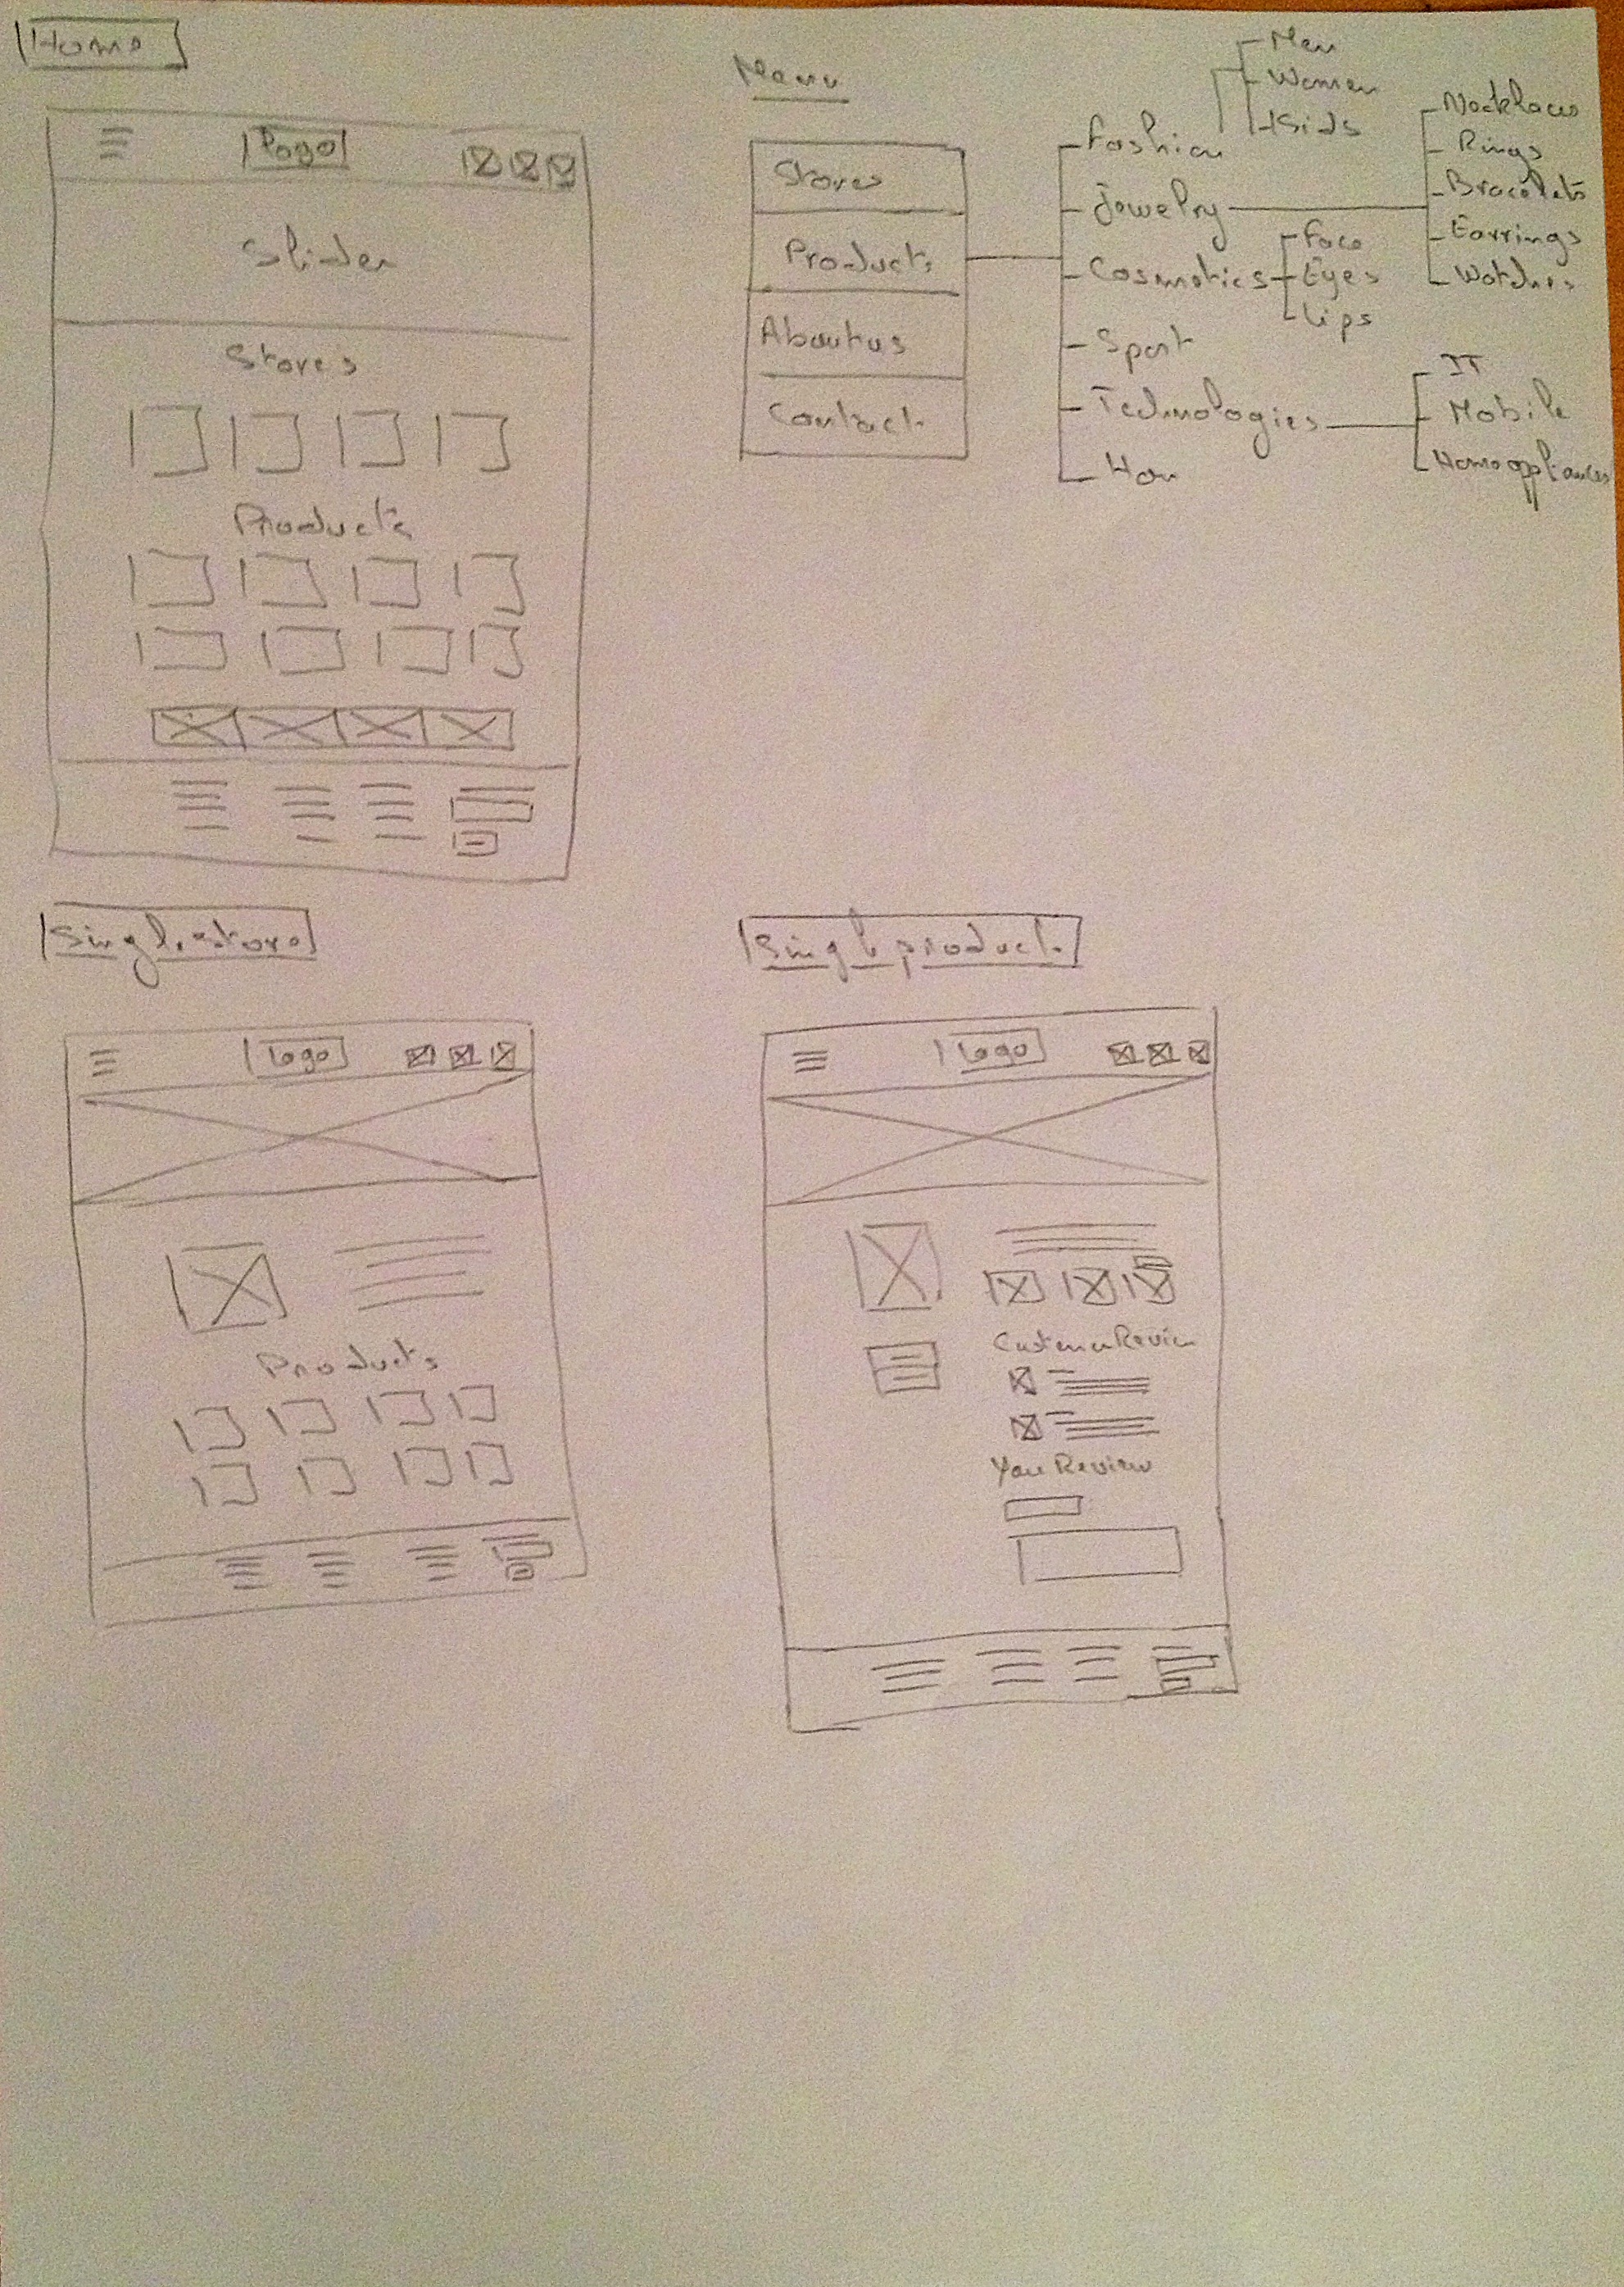 Home
Logo
Slider
Stores
Products
Menu
Stores
Products
About us
Contact
Fashion
Men
Women
Kids
Jewelry
Necklaces
Rings
Bracelets
Earrings
Watches
Cosmetics
Face
Eyes
Lips
Sport
Technologies
IT
Mobile
Home appliances
Single store
Logo
Products
Single product
Logo
Customer Review
You Review